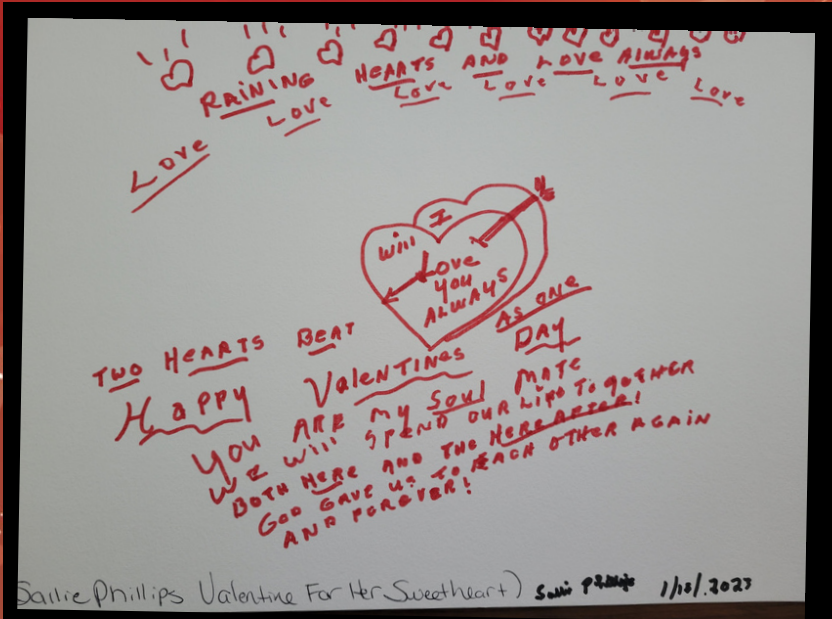 RAINING HEARTS AND LOVE ALWAYS
Love Love Love Love Love
Love
I
Will
Love
you
ALWAYS
TWO HEARTS BEAT AS ONE
Happy Valentines DAY
YOU ARE my Soul MATE
WE Will SPEND OUR LIFE TOGETHER
BOTH HERE AND THE HEREAFTER!
GOD GAVE US TO EACH OTHER AGAIN
AND FOREVER!
Sallie Phillips Valentine For Her Sweetheart) Sallie Phillips